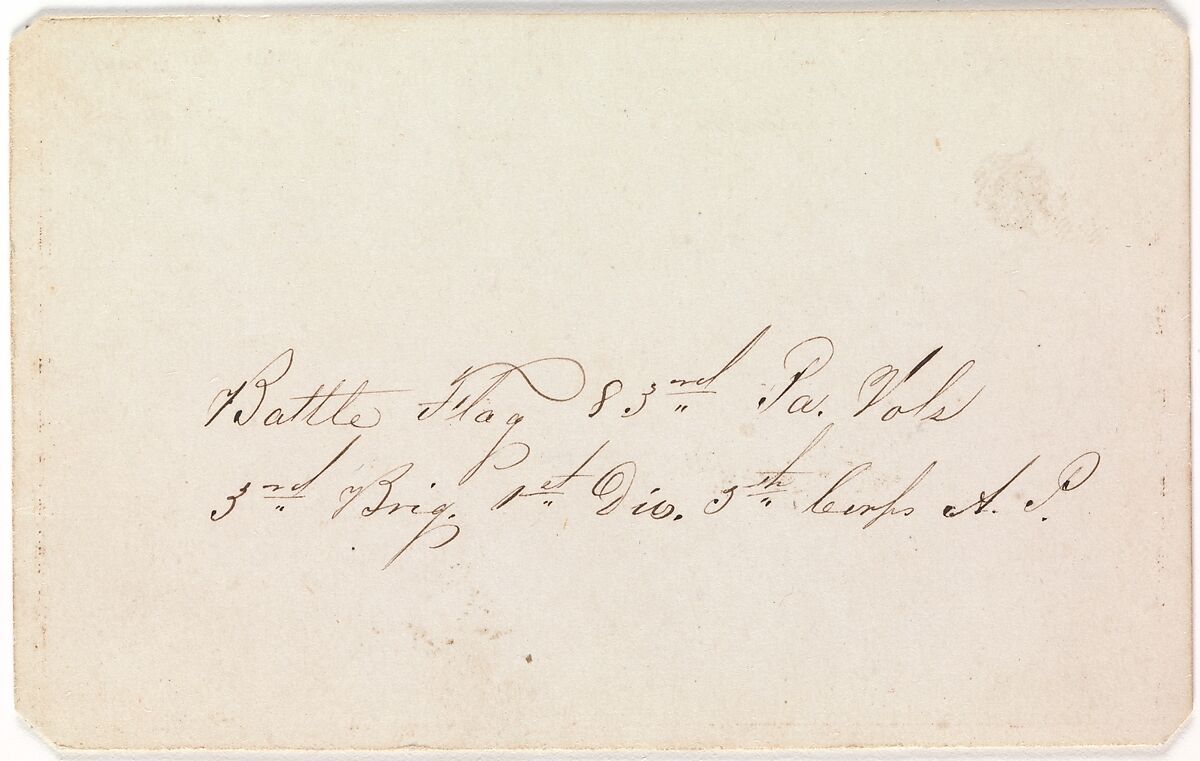 Battle Flag 83rd Pa. Vols
3rd Brig. 1st Div. 5th Corps A. P.